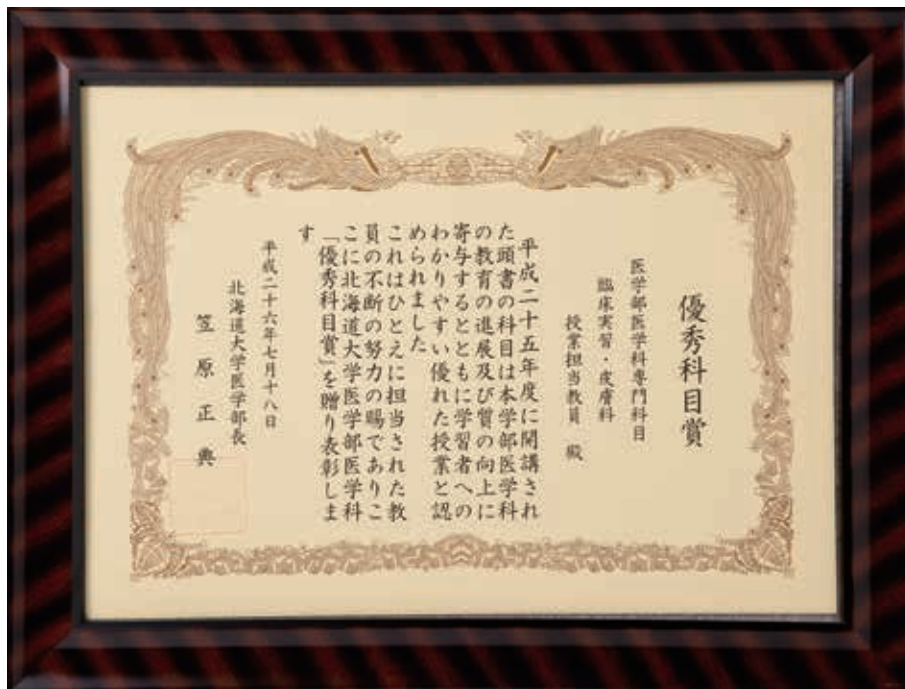 優秀科目賞
医学部医学科専門科目
臨床実習・皮膚科
授業担当教員　殿
平成二十五年度に開講され
た頭書の科目は本学部医学科
の教育の進展及び質の向上に
寄与するとともに学習者への
わかりやすい優れた授業と認
められました
これはひとえに担当された教
員の不断の努力の賜でありこ
こに北海道大学医学部医学科
「優秀科目賞」を贈り表彰しま
す
平成二十六年七月十八日
北海道大学医学部長
笠原正典